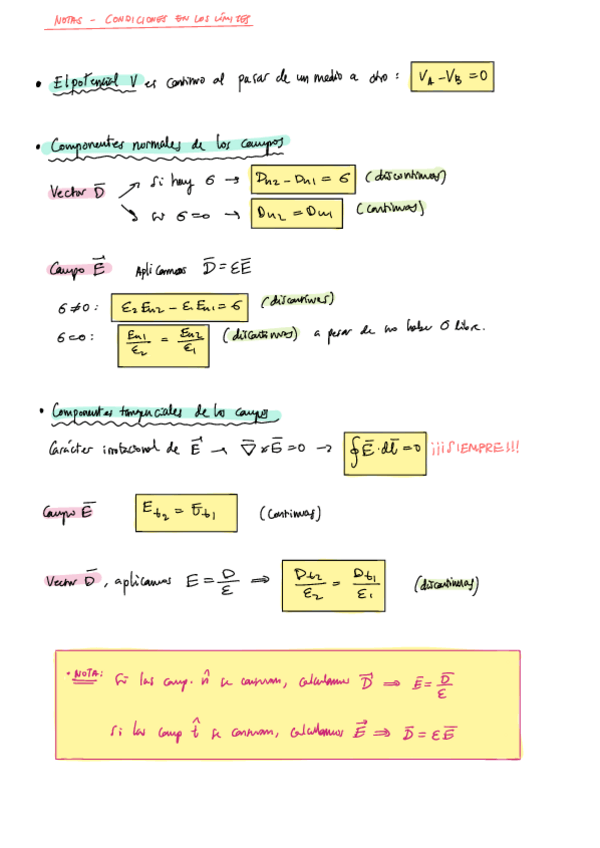 NOTAS - CONDICIONES EN LOS LÍMITES
• El potencial V es continuo al pasar de un medio a otro : V_A - V_B = 0
• Componentes normales de los campos
Vector D̄ ↗ Si hay σ → Dn2 - Dn1 = σ (discontinuas)
↘ Si σ=0 → Dn2 = Dn1 (continuas)
Campo E⃗ Aplicamos D̄ = εĒ
σ≠0 : ε2 En2 - ε1 En1 = σ (discontinuas)
σ=0 : En1/ε2 = En2/ε1 (discontinuas) a pesar de no haber σ libre.
• Componentes tangenciales de los campos
Carácter irrotacional de E⃗ → ∇̄ × Ē = 0 → ∮ Ē · dl̄ = 0 ¡¡¡SIEMPRE!!!
Campo Ē Et2 = Et1 (continuas)
Vector D̄, aplicamos E = D/ε ⇒ Dt2/ε2 = Dt1/ε1 (discontinuas)
• NOTA: Si las comp. n̂ se conservan, calculamos D⃗ ⇒ Ē = D̄/ε
Si las comp t̂ se conservan, calculamos E⃗ ⇒ D̄ = εĒ